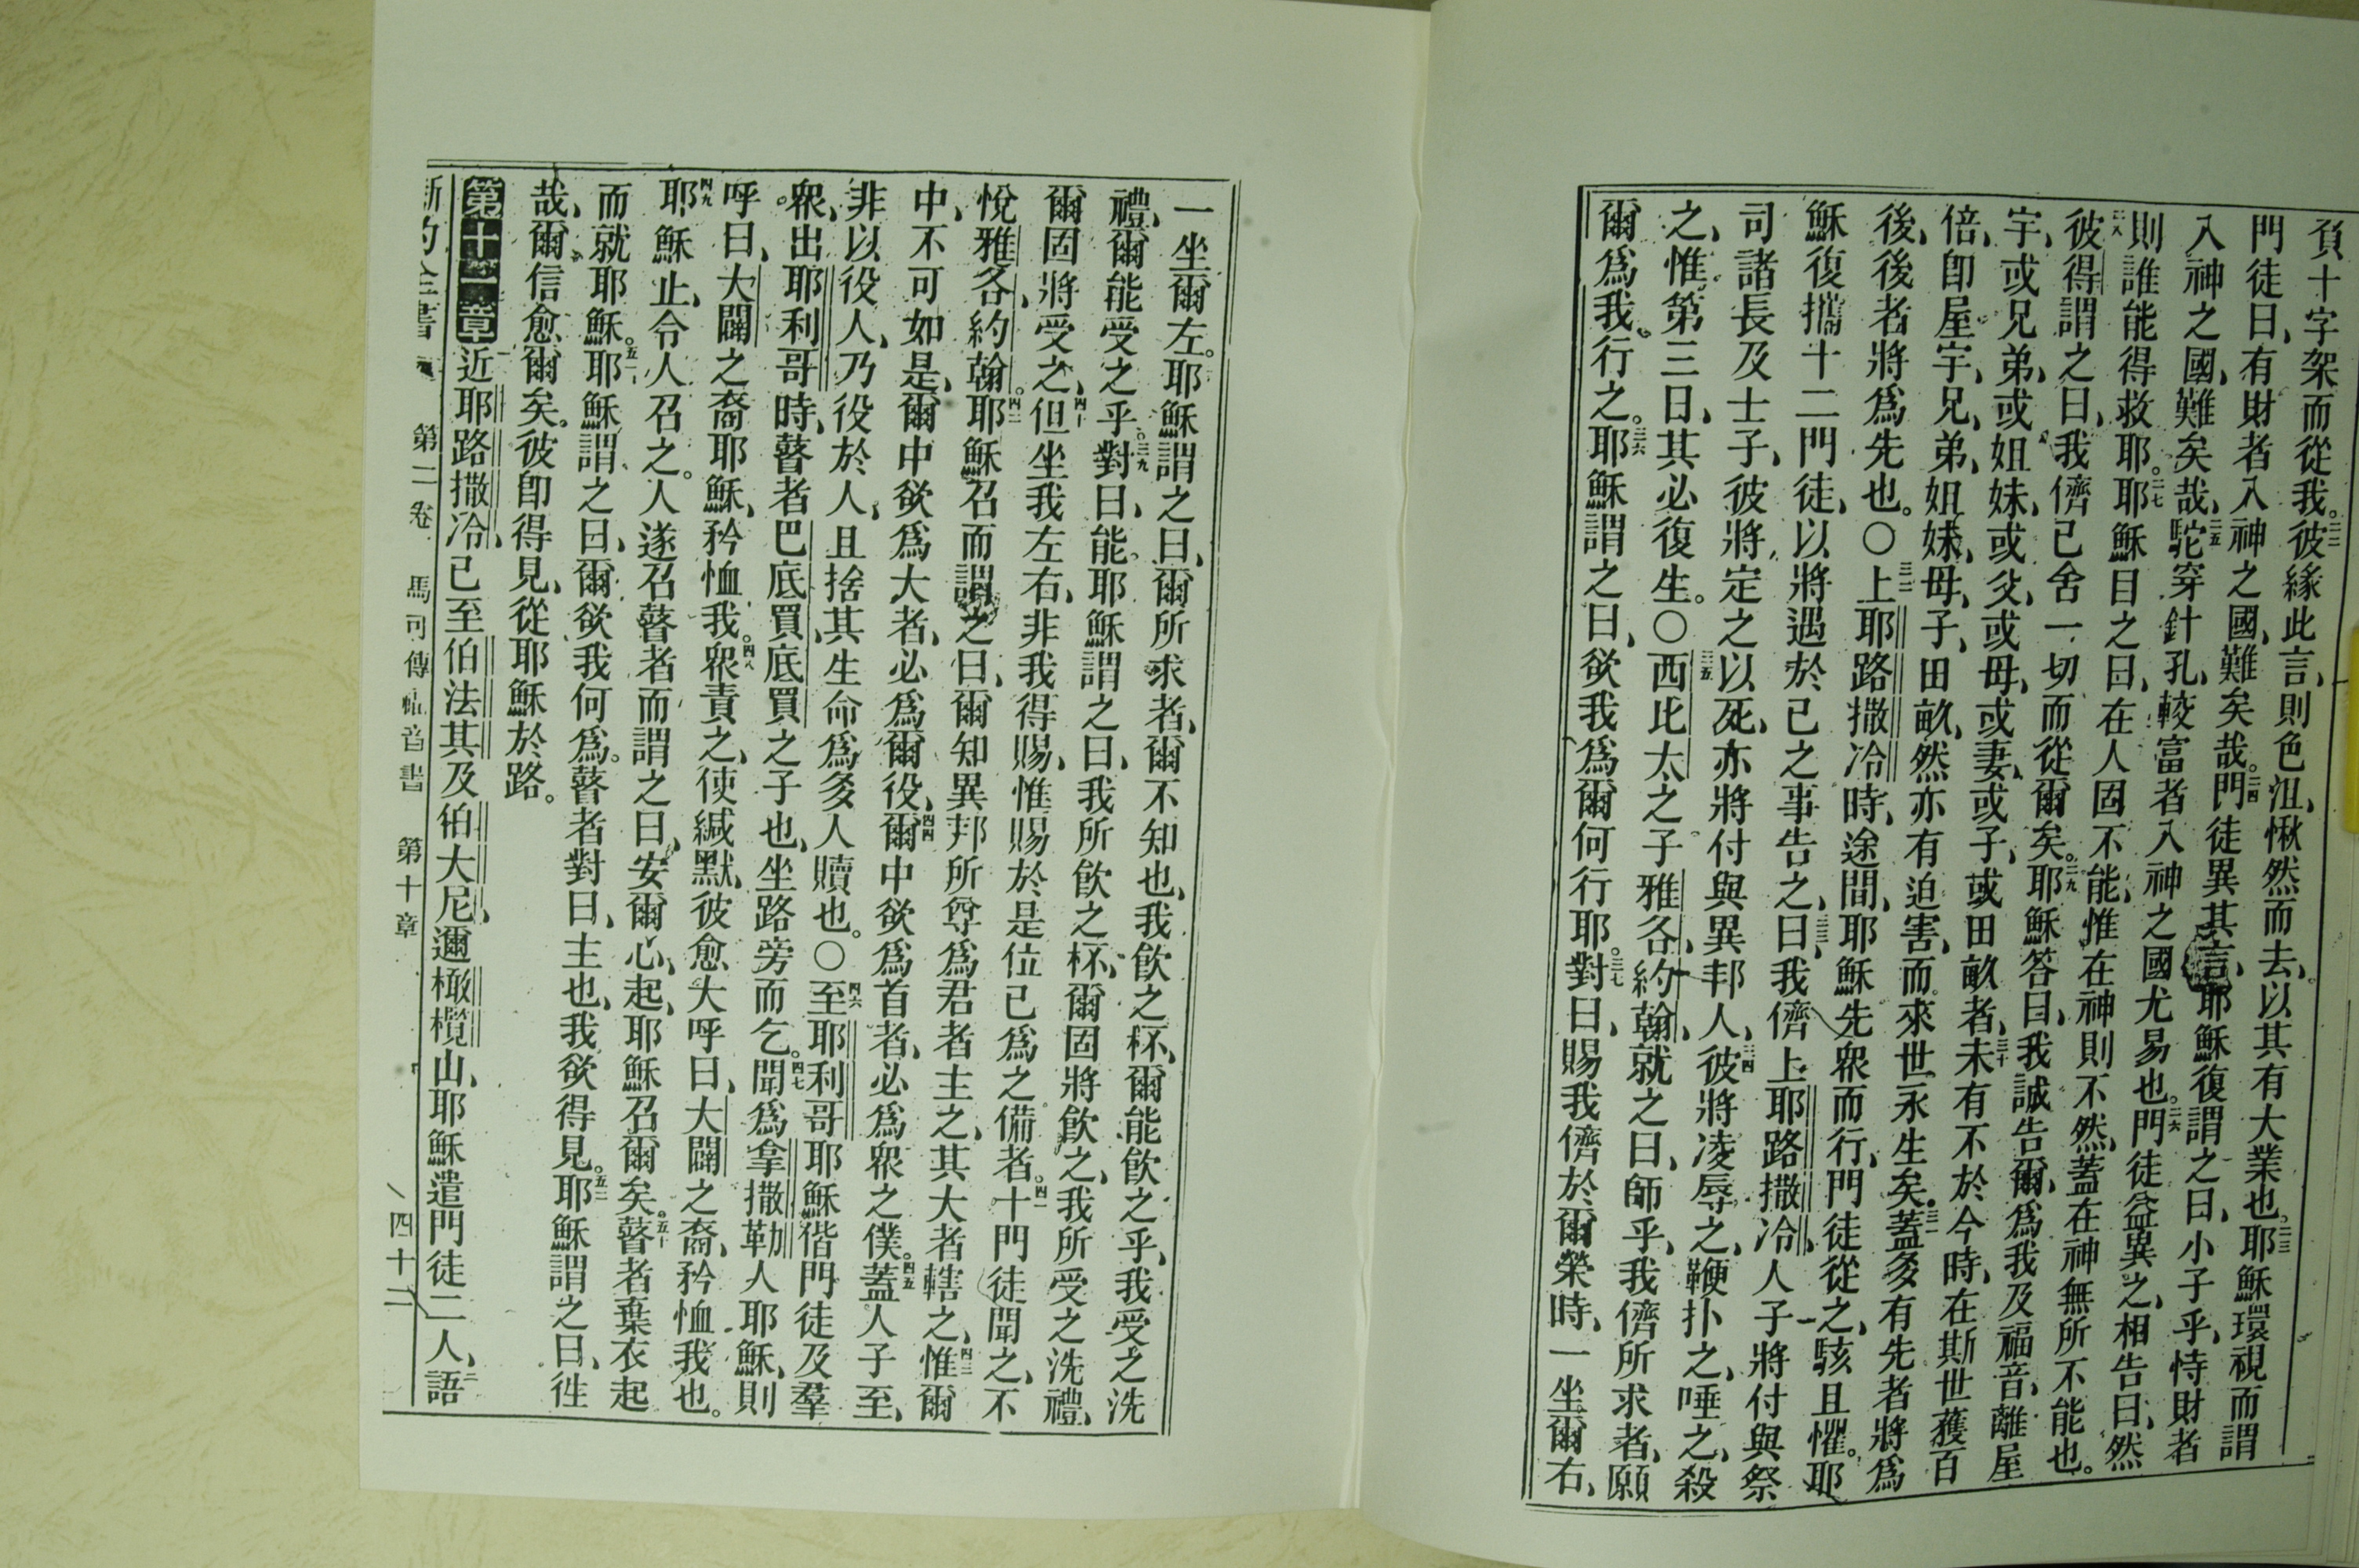 負十字架而從我。二二彼緣此言、則色沮、愀然而去、以其有大業也。二三耶穌環視而謂
門徒曰、有財者入神之國、難矣哉。二四門徒異其言、耶穌復謂之曰、小子乎、恃財者
入神之國、難矣哉、二五駝穿針孔、較富者入神之國尤易也。二六門徒益異之、相告曰、然
則誰能得救耶。二七耶穌目之曰、在人固不能、惟在神則不然、蓋在神無所不能也。
二八彼得謂之曰、我儕已舍一切而從爾矣。二九耶穌答曰、我誠告爾、爲我及福音、離屋
宇、或兄弟、或姐妹、或父、或母、或妻、或子、或田畝者、三十未有不於今時、在斯世獲百
倍、卽屋宇、兄弟、姐妹、母、子、田畝、然亦有迫害、而來世永生矣。三一蓋多有先者將爲
後、後者將爲先也。〇三二上耶路撒冷時、途間、耶穌先衆而行、門徒從之、駭且懼。耶
穌復攜十二門徒、以將遇於己之事告之、三三曰、我儕上耶路撒冷、人子將付與祭
司諸長及士子、彼將定之以死、亦將付與異邦人、三四彼將凌辱之、鞭扑之、唾之、殺
之、惟第三日、其必復生。〇三五西比太之子雅各、約翰、就之曰、師乎、我儕所求者、願
爾爲我行之。三六耶穌謂之曰、欲我爲爾何行耶。三七對曰、賜我儕於爾榮時、一坐爾右、
一坐爾左。耶穌謂之曰、爾所求者、爾不知也、我飲之杯、爾能飲之乎、我受之洗
禮、爾能受之乎。三九對曰、能。耶穌謂之曰、我所飲之杯、爾固將飲之、我所受之洗禮、
爾固將受之、四十但坐我左右、非我得賜、惟賜於是位已爲之備者。四一十門徒聞之、不
悅雅各、約翰。四二耶穌召而謂之曰、爾知異邦所尊爲君者主之、其大者轄之、四三惟爾
中、不可如是、爾中欲爲大者、必爲爾役、四四爾中欲爲首者、必爲衆之僕。四五蓋人子至、
非以役人、乃役於人、且捨其生命爲多人贖也。〇四六至耶利哥、耶穌偕門徒及羣
衆、出耶利哥時、瞽者巴底買、底買之子也、坐路旁而乞。四七聞爲拿撒勒人耶穌、則
呼曰、大闢之裔耶穌、矜恤我。四八衆責之、使緘默、彼愈大呼曰、大闢之裔、矜恤我也。
四九耶穌止、令人召之。人遂召瞽者而謂之曰、安爾心、起、耶穌召爾矣。五十瞽者棄衣起
而就耶穌。五一耶穌謂之曰、爾欲我何爲。瞽者對曰、主也、我欲得見。五二耶穌謂之曰、徃
哉、爾信愈爾矣。彼卽得見、從耶穌於路。
第十一章近耶路撒冷、已至伯法其及伯大尼、邇橄欖山、耶穌遣門徒二人、二語
新約全書 第二卷 馬可傳福音書 第十章 四十二